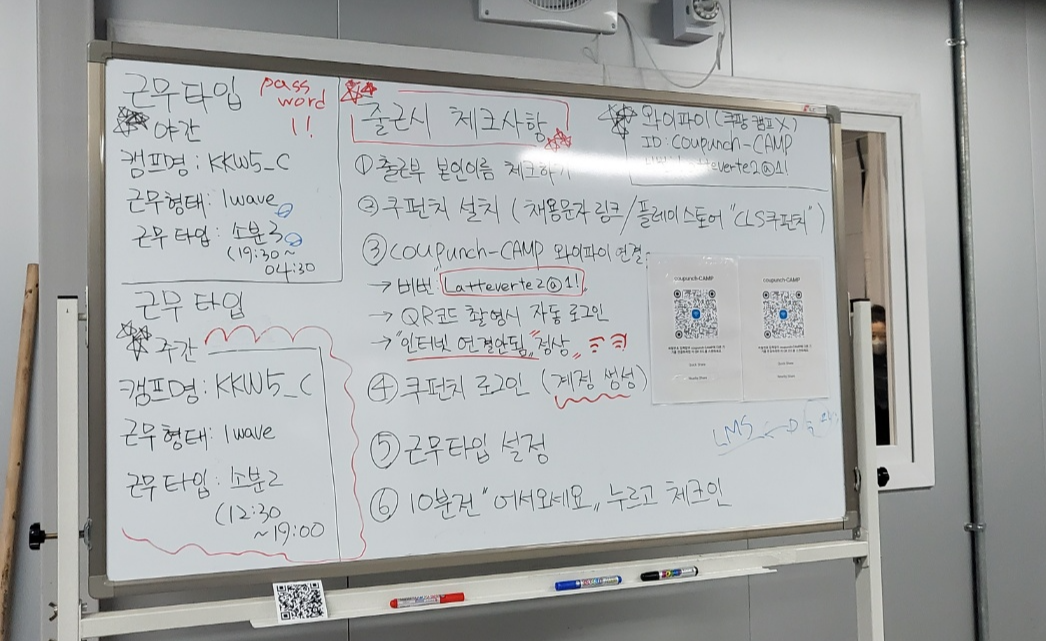 근무타입
pass
word
1!
야간
캠프명: KKW5_C
근무형태: 1wave
근무타입: 소분3
(19:30~
04:30
근무타입
주간
캠프명: KKW5_C
근무형태: 1wave
근무타입: 소분2
(12:30
~19:00
출근시 체크사항
① 출근부 본인이름 체크하기
② 쿠펀치 설치 (채용문자링크/플레이스토어 "CLS쿠펀치")
③ coupunch-CAMP 와이파이 연결
→ 비번 "Latteverte2@1!
→ QR코드 촬영시 자동로그인
→ "인터넷 연결안됨" 정상
④ 쿠펀치 로그인 (계정 생성)
⑤ 근무타입 설정
⑥ 10분전 "어서오세요" 누르고 체크인
와이파이 (쿠팡캠프X)
ID: coupunch-CAMP
Latteverte2@1!
coupunch-CAMP
coupunch-CAMP
LMS